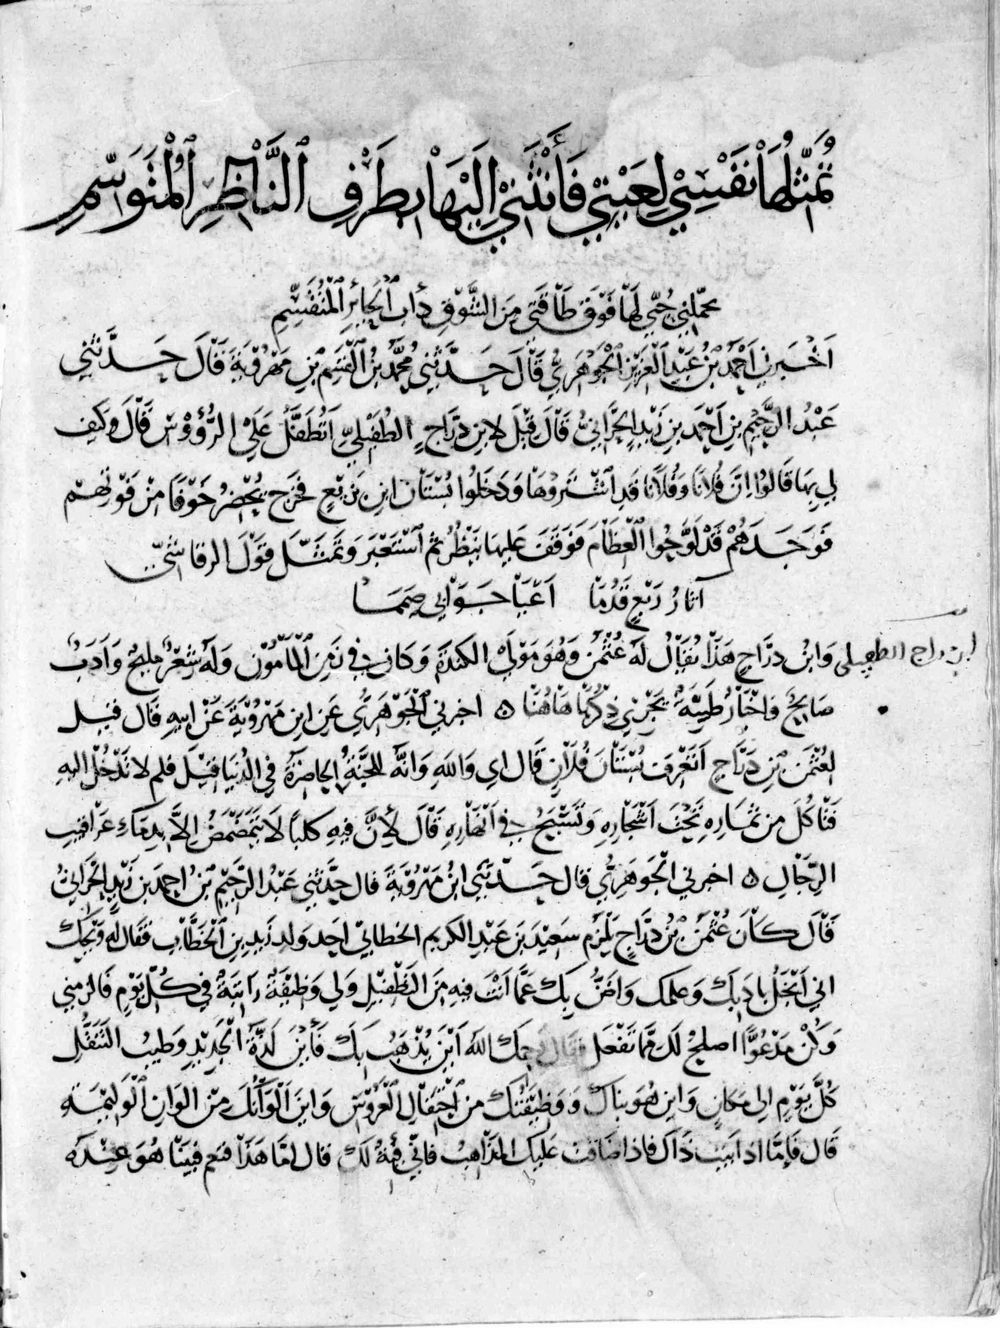 تُمَثِّلُهَا نَفْسِيْ لِعَيْنِيْ فَأَنْثَنِيْ اِلَيْهَا بِطَرْفِ النَّاظِرِ الْمُتَوَسِّمِ
يحمّلني حُبِّي لَهَا فَوْقَ طَاقَتِي مِنَ الشَّوْقِ دَأبَ الحَائِرِ الْمُتَقَسِّمِ
اَخْبَرنِي اَحْمَدُ بْنُ عَبْدِ الْعَزِيْزِ الْجَوْهَرِيُّ قَالَ حَدَّثَنِي مُحَمَّدُ بْنُ الْقٰسِمِ بْنِ مَهْرُوْيَةَ قَالَ حَدَّثَنِي
عَبْدُ الرَّحِيْمِ بنِ اَحْمَدَ بنِ زَيْدٍ الحَرَّانِيُّ قَالَ قِيْلَ لابنِ دَرَّاجٍ الطُفَيْلِيِّ اَتُطَفِّلُ عَلَى الرُّؤُوْسِ قَالَ وَكَيْف
لِي بِهَا قَالُوا اِنَّ فُلَانًا وَفُلَانًا قَدِ اشْتَرَوْهَا وَدَخَلُوا بُسْتَانَ ابنِ بَزِيْعٍ فَخَرَج يُحْضِرُ خَوْفًا مِنْ فَوْتِهِمْ
فَوَجَدَهُمْ قَدْ لَوَّحُوا الْعِظَامَ فَوَقَفَ عَلَيْهَا يَنْظُرُ ثُمَّ اسْتَعْبَرَ وَتَمَثَّلَ قَوْلَ الرقاشيّ
آثارُ رَبْعٍ قَدُمَا اَعْيَا جَوَابِي صَمَمَا
ابن دراج الطفيلى وَابنُ دَرَّاجٍ هَذَا يُقَالُ لَهُ عُثْمٰنُ وَهُوَ مَوْلَى الكنْدَةِ وَكَانَ فِي زَمَنِ الْمَأمُوْنِ وَلَهُ شعْرٌ مَلِيْحٌ وَادَبٌ
صَالِحٌ وَاخْبَارٌ طَيِّبَةٌ يَجْرِي ذِكْرُهَا هَاهُنَا ه اخبرني الْجَوْهَرِيُّ عَنِ ابنِ مَهْرُوْيَةَ عَنْ اَبِيْهِ قَالَ قيْلَ
لِعُثْمٰنَ بْنِ دَرَّاجٍ اَتَعْرِفُ بُسْتَانَ فُلَانٍ قَالَ اي وَاللهِ وَانَّهُ لَلجَنَّةُ الحَاضِرَةُ فِي الدُّنْيَا قِيْلَ فلم لَا تَدْخُلُ اليهِ
فَتَاكُلَ مِنْ ثِمَارِهِ تَحْتَ اَشْجَارِهِ وَتَسْبَحُ فِي اَنْهَارِهِ قَالَ لِأنَّ فِيْهِ كَلبًا لَا يَتَمَضْمَضُ اِلَّا بِدِمَاءِ عَرَاقِيبِ
الرِّجَالِ ه اخبرني الْجَوهَرِيُّ قال حَدَّثَنِي ابنُ مَهْرُوْيَةَ قال حَدَّثَنِي عَبْدُ الرَّحِيْمِ بْنُ احمَدَ بن زَيْدٍ الحَرَّانِيُّ
قَالَ كَانَ عُثْمٰنُ بْنُ دَرَّاجٍ يَلْزَمُ سَعِيْدَ بنَ عَبْدِ الكَريم الخطابي احَد وَلدِ زَيدِ بنِ الْخَطَّابِ فَقَالَ لَهُ وَيْحَكَ
اني اَبْخَلُ بادَبِكَ وَعلمِكَ وَاضنُّ بِكَ عَمَّا اَنْتَ فِيْهِ مِنَ التَّطْفِيْلِ وَلِي وَظِيْفَةٌ رَاتِبَةٌ فِي كُلِّ يَوْمٍ فَالزمني
وَكُنْ مَدْعُوًّا اصلحُ لَكَ مِمَّا تَفْعَلُ فَقَالَ رَحِمَكَ اللهُ اَيْنَ يُذْهَبُ بِكَ فَأيْنَ لَذَّةُ الْجَدِيْدِ وَطِيْبُ التَّنَقُّلِ
كُلَّ يَوْمٍ الى مَكَانٍ وَاينَ هُوَ بِنَاكَ وَوَظِيْفَتُكَ مِنِ احْتِفَالِ الْعُرُوْسِ وَاينَ الْوَانُكَ مِنْ الوَانِ الْوَلِيْمَةِ
قَالَ فَاِمَّا اذ اَبَيْتَ ذَاكَ فَاذا ضَاقَتْ عَلَيْكَ المَذَاهِبُ فَاني فِئَةٌ لَكَ قَالَ امَّا هَذَا فَنَعم فبَيْنَا هُوَ عنْدَهُ